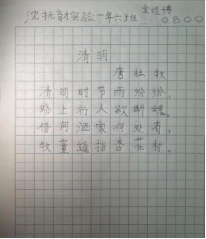 沈抚育才实验一年六班
清明
唐杜牧
清明时节雨纷纷，
路上行人欲断魂。
借问酒家何处有，
牧童遥指杏花村。